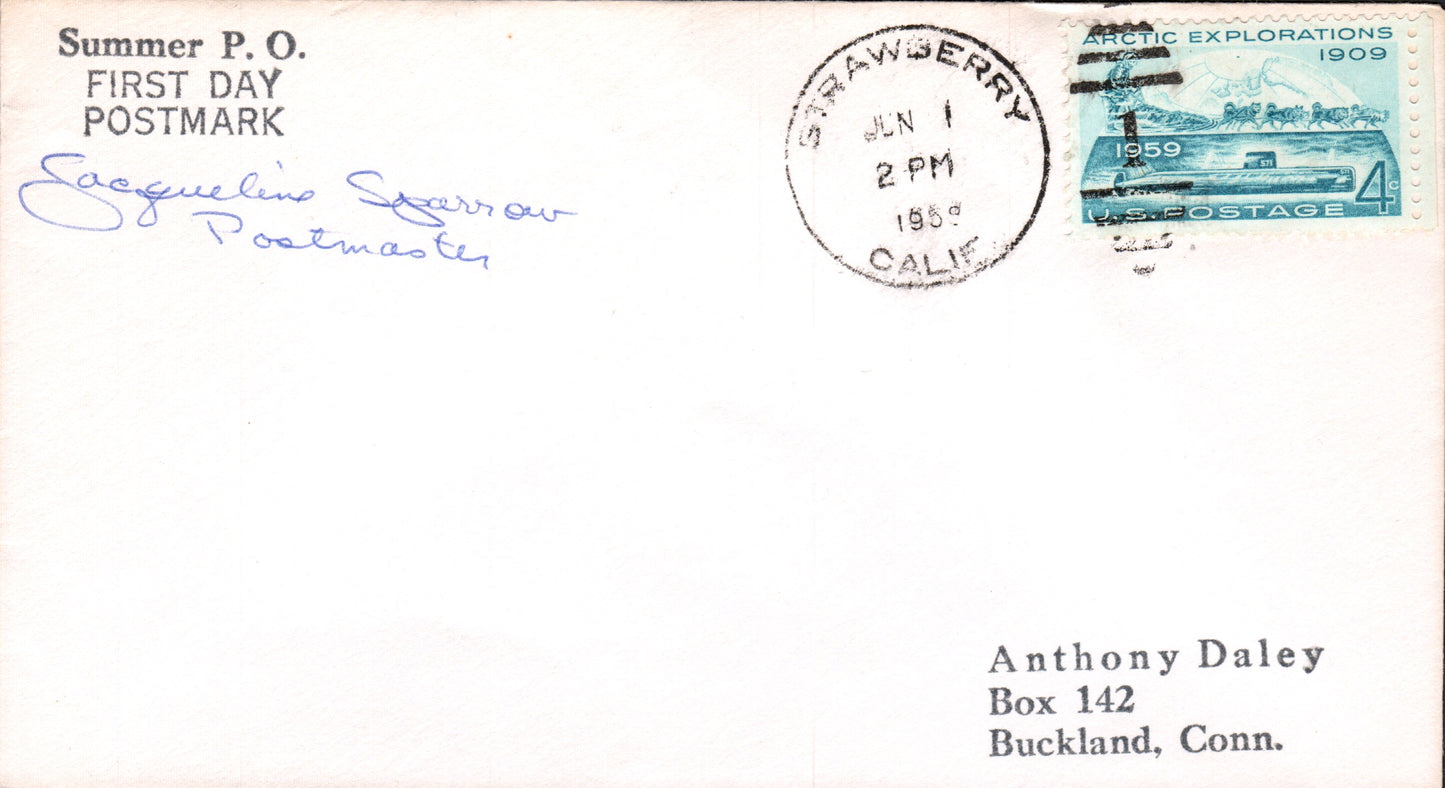 Summer P. O.
FIRST DAY
POSTMARK
Jacqueline Sparrow
Postmaster
STRAWBERRY
JUN 1
2 PM
1959
CALIF
ARCTIC EXPLORATIONS
1909
1
1959
571
4c
U.S. POSTAGE
Anthony Daley
Box 142
Buckland, Conn.